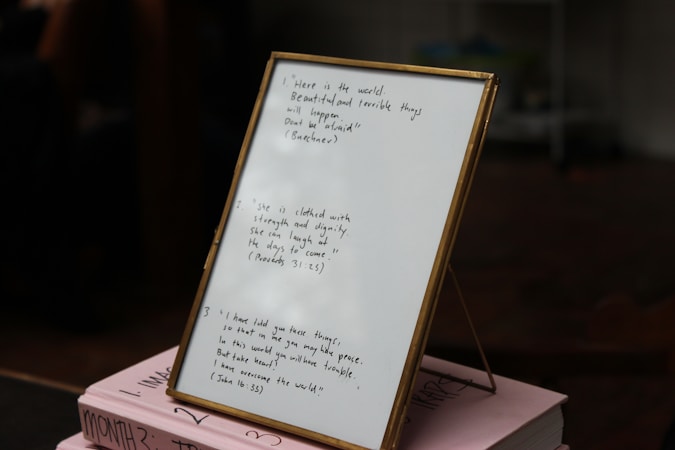 1. "Here is the world.
Beautiful and terrible things
will happen.
Dont be afraid"
(Buechner)
2. "She is clothed with
strength and dignity.
She can laugh at
the days to come."
(Proverbs 31:25)
3 "I have told you these things,
so that in me you may have peace.
In this world you will have trouble.
But take heart!
I have overcome the world."
(John 16:33)
1.
2
3
MONTH 3: